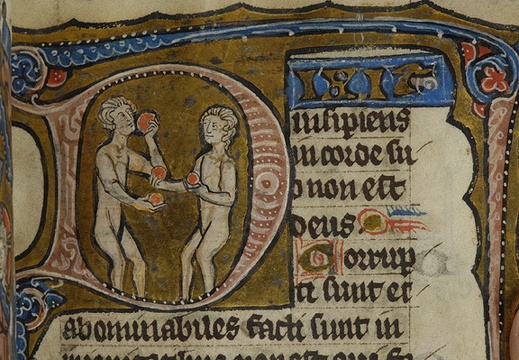 DIXIT
insipiens
in corde su
o non est
deus.
Corrup
ti sunt et
abominabiles facti sunt in